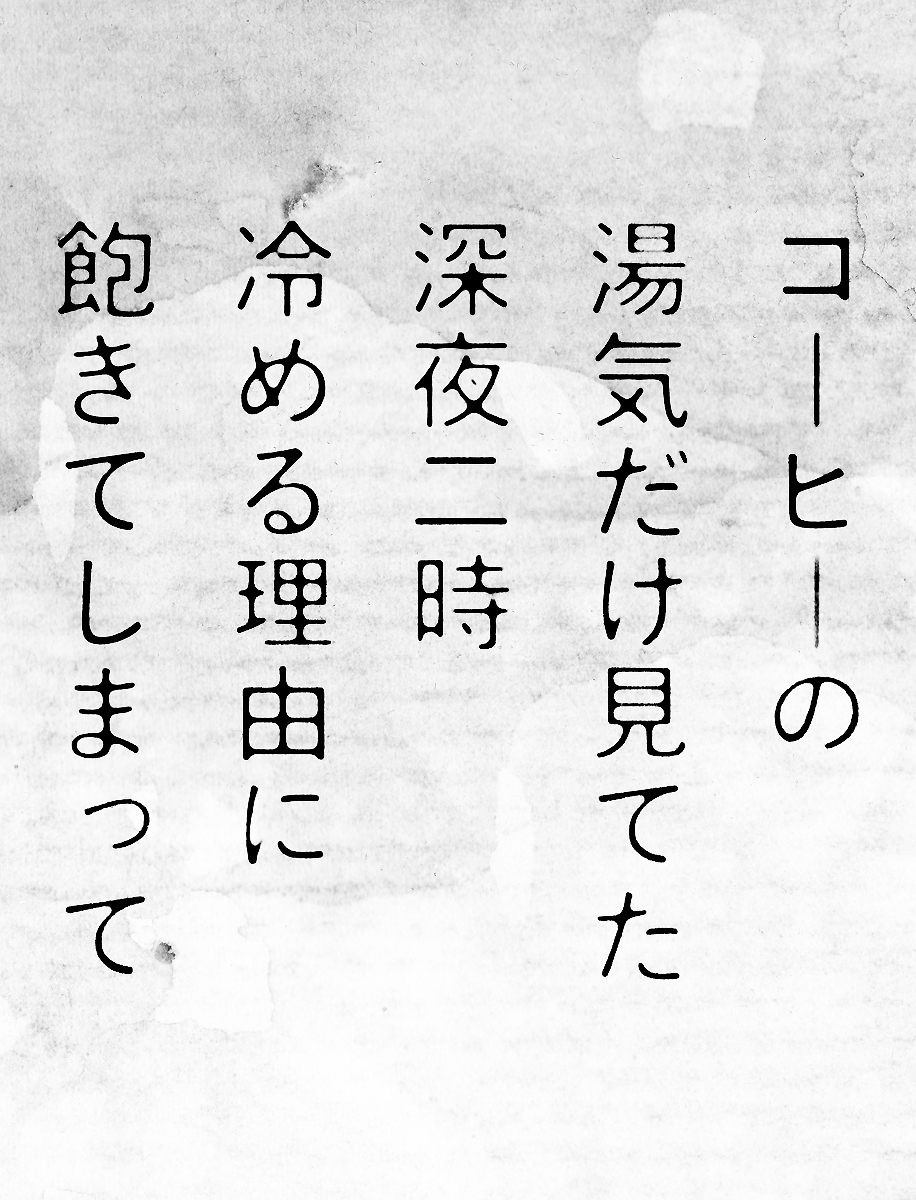 コーヒーの
湯気だけ見てた
深夜二時
冷める理由に
飽きてしまって